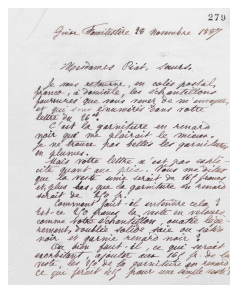 279
Guise Familistère 29 novembre 1897
Mesdames Piat, soeurs.
Je vous retourne, en colis postal,
franco, à domicile, les échantillons
fournitures que vous venez de m'envoyer
et qui sont énumérés dans votre
lettre du 26
C'est la garniture en renard
noir qui me plairait le mieux.
Je ne trouve pas belles les garnitures
en plumes.
Mais votre lettre n'est pas expli-
cite quant aux prix. Vous me dites
que la veste unie serait de 165 francs,
et plus bas, que la garniture en renard
serait de
Comment faut-il entendre cela?
Est-ce francs la veste en velours
comme votre échantillon, ouatée légè-
rement, doublée solide soie ou satin
noir et garnie renard noir?
Ou bien faut-il, ce qui serait
exorbitant ajouter aux 165 fr. de la
veste, les de la garniture en renard,
ce qui ferait pour une simple veste?